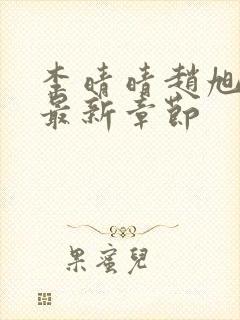 李晴晴趙旭
最新章節
果蜜兒